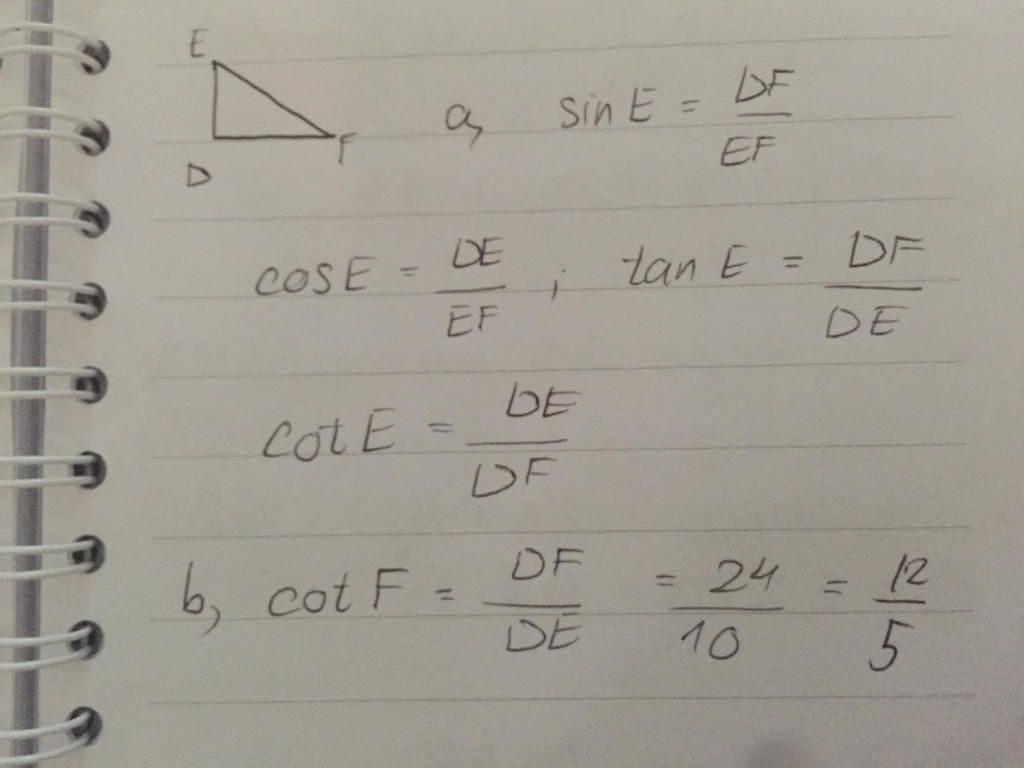 E
D
F
a, sin E = DF/EF
cos E = DE/EF ; tan E = DF/DE
cot E = DE/DF
b, cot F = DF/DE = 24/10 = 12/5